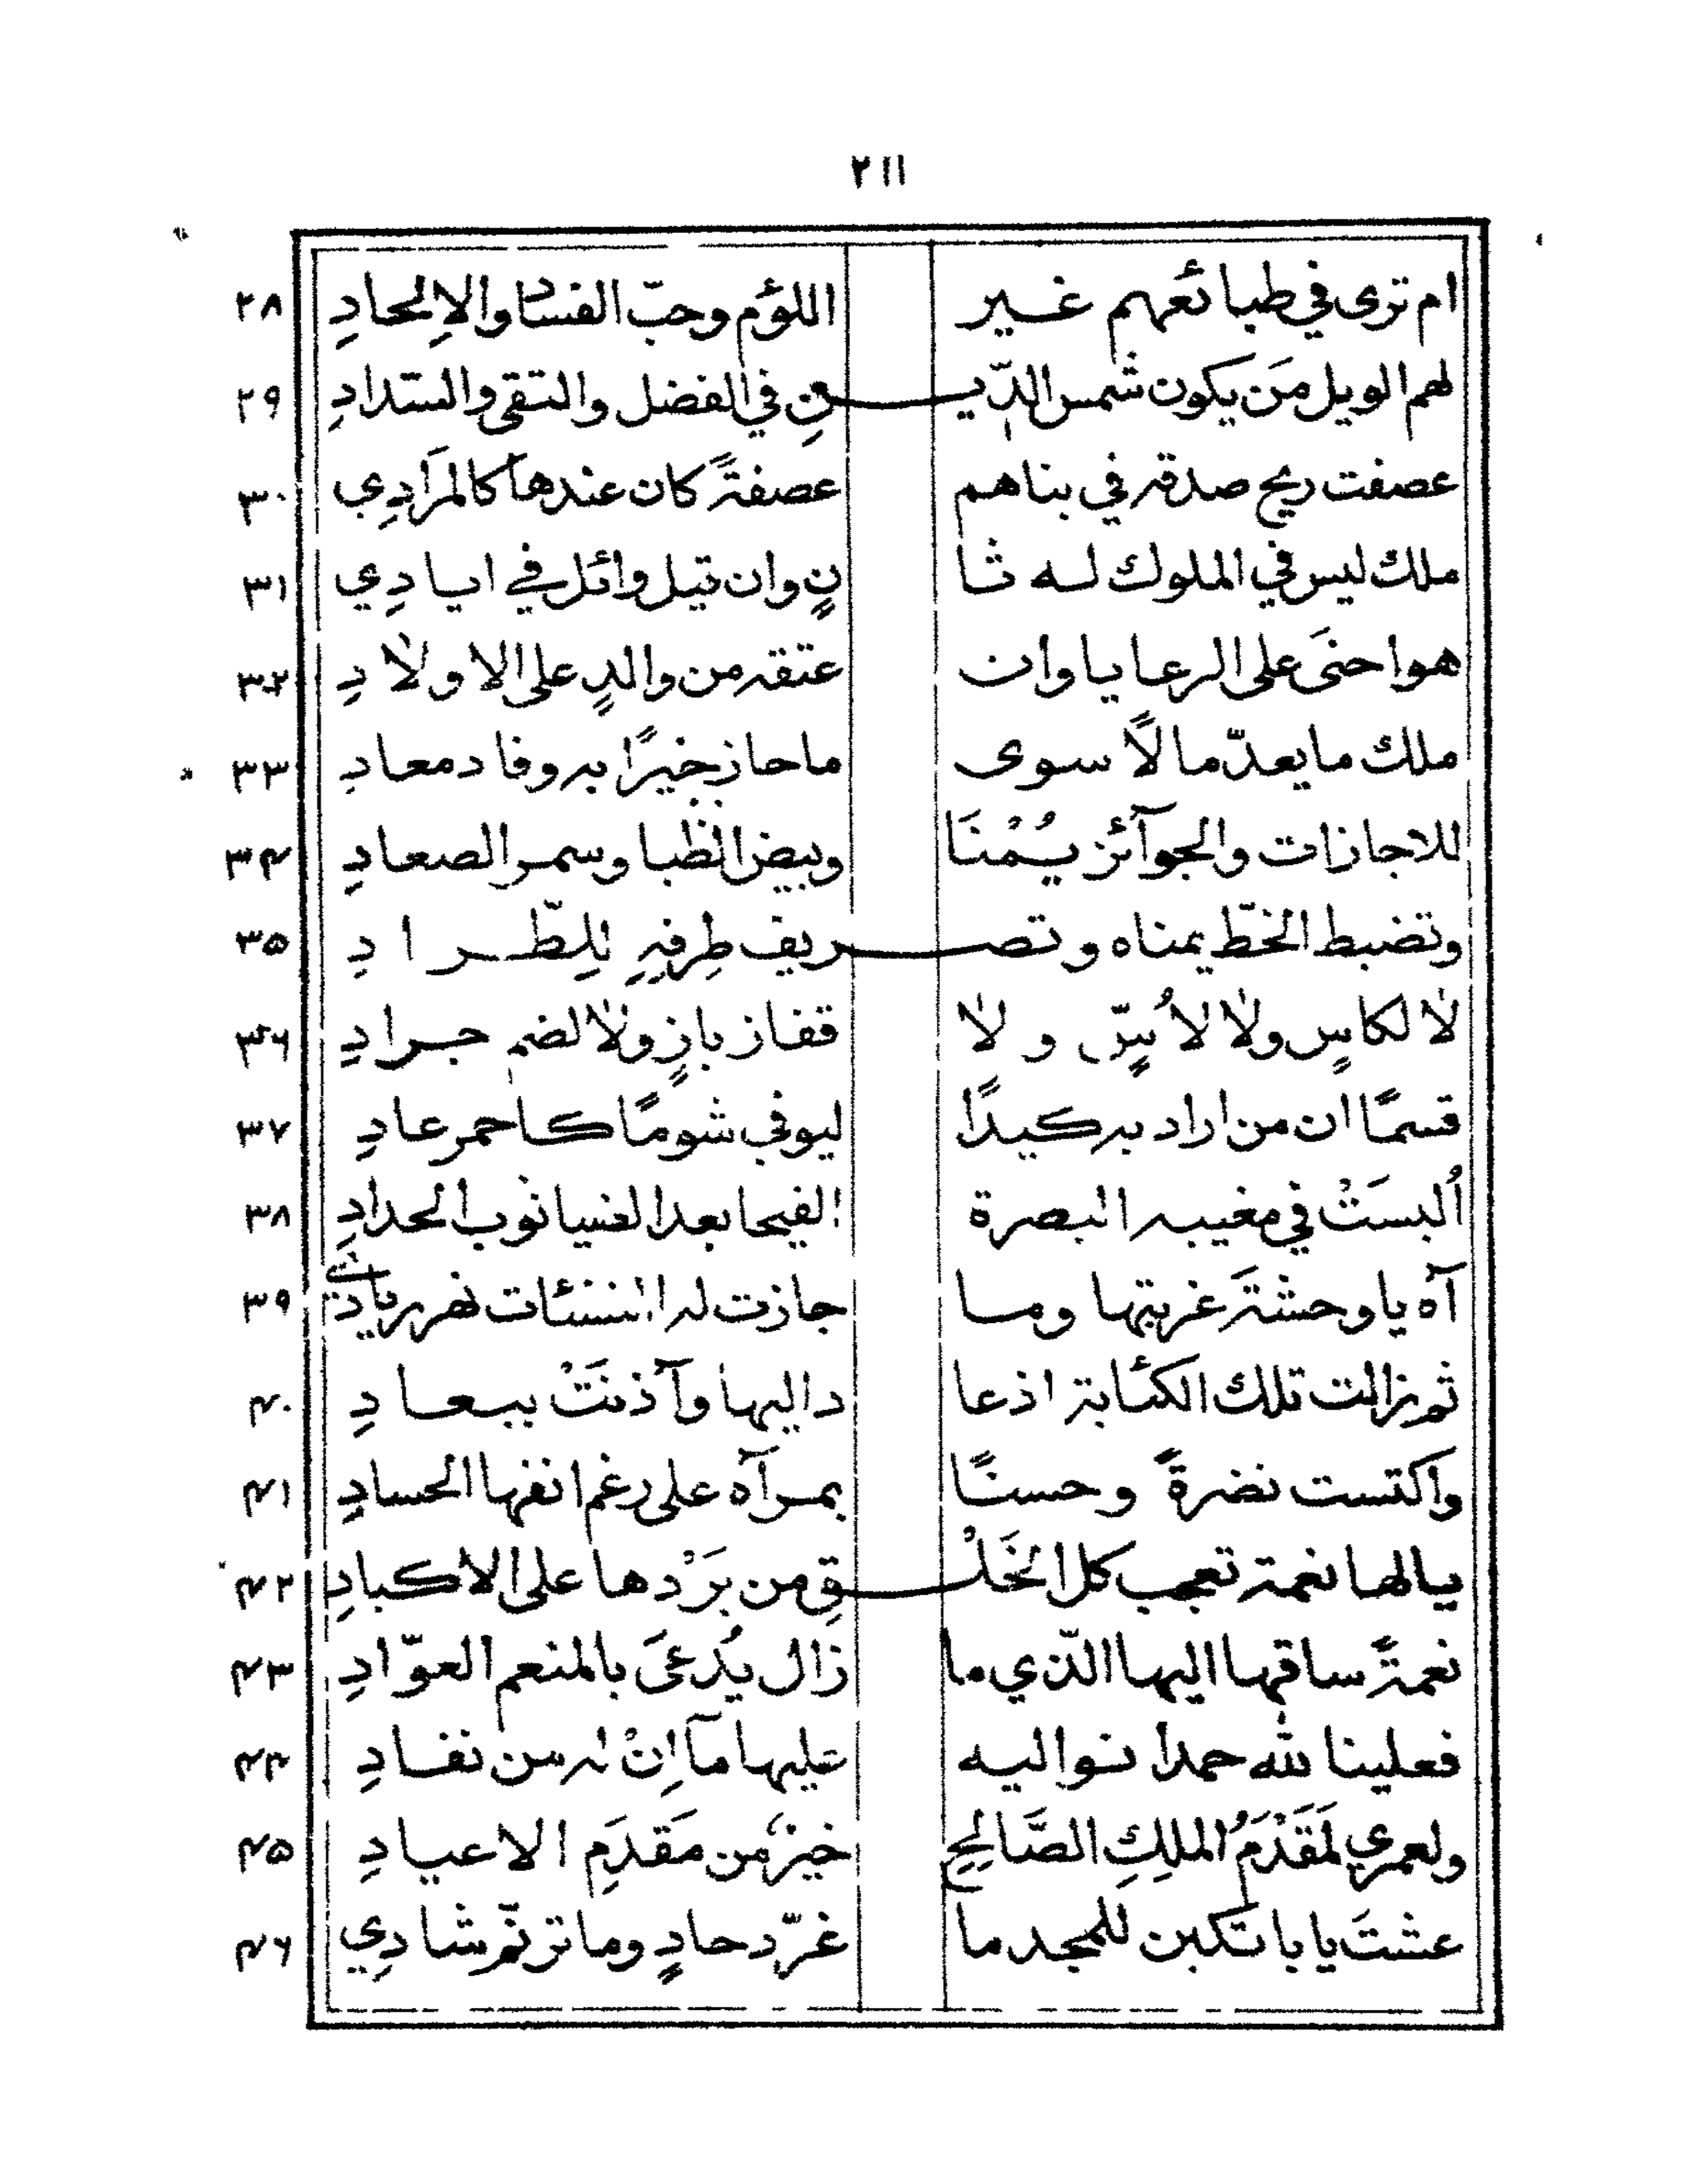 ٢١١
ام ترى في طبائعهم غير اللؤم وحبّ الفساد والإلحادِ ٢٨
لهم الويل مَن يكون شمس الدّيـنِ في الفضل والتقى والسّدادِ ٢٩
عصفت ريح صدقه في بناهم عصفةً كان عندها كالمَرَادِي ٣٠
ملك ليس في الملوك له ثا نٍ وان تيل وائل في ايادِي ٣١
هو احنَى على الرعايا وان عتقه من والدٍ على الاولادِ ٣٢
ملك ما يعدّ مالاً سوى ما حاز خيرًا به وفاد معادِ ٣٣
للاجازات والجوآئز يُمْنَا وبيض الظبا وسمر الصعادِ ٣٤
وتضبط الخطّ يمناه وتصـريف طِرفِهِ لِلطّرادِ ٣٥
لا لكاسٍ ولا لاُ نبٍرّ ولا قفاز بازٍ ولا لضم جرادِ ٣٦
قسمًا ان من اراد به كيدًا ليوفي شومًا كاحمر عادِ ٣٧
اُلبسَتْ في مغيبه البصرة الفيحا بعد الضيا ثوب الحدادِ ٣٨
آه يا وحشتَه غربتها وما جازت له المنشئات نهر زيادِ ٣٩
ثم زالت تلك الكئابة اذ عا د اليها وآذنَتْ ببعادِ ٤٠
واكتست نضرةً وحسنًا بمرآه على رغم انفها الحسادِ ٤١
يا لها نعمة تعجب كل الخَلْـقِ من بَرْدها على الاكبادِ ٤٢
نعمةً ساقها اليها الّذي ما زال يُدعَى بالمنعم العوّادِ ٤٣
فعلينا لله حمدا نواليه عليها مآ إنْ له من نفادِ ٤٤
ولعمري لَمَقْدَمُ الملِكِ الصَّالِحِ خيرٌ من مَقدَمِ الاعيادِ ٤٥
عشتَ يا باتكين للمجد ما غرّد حادٍ وما ترنّم شادِي ٤٦